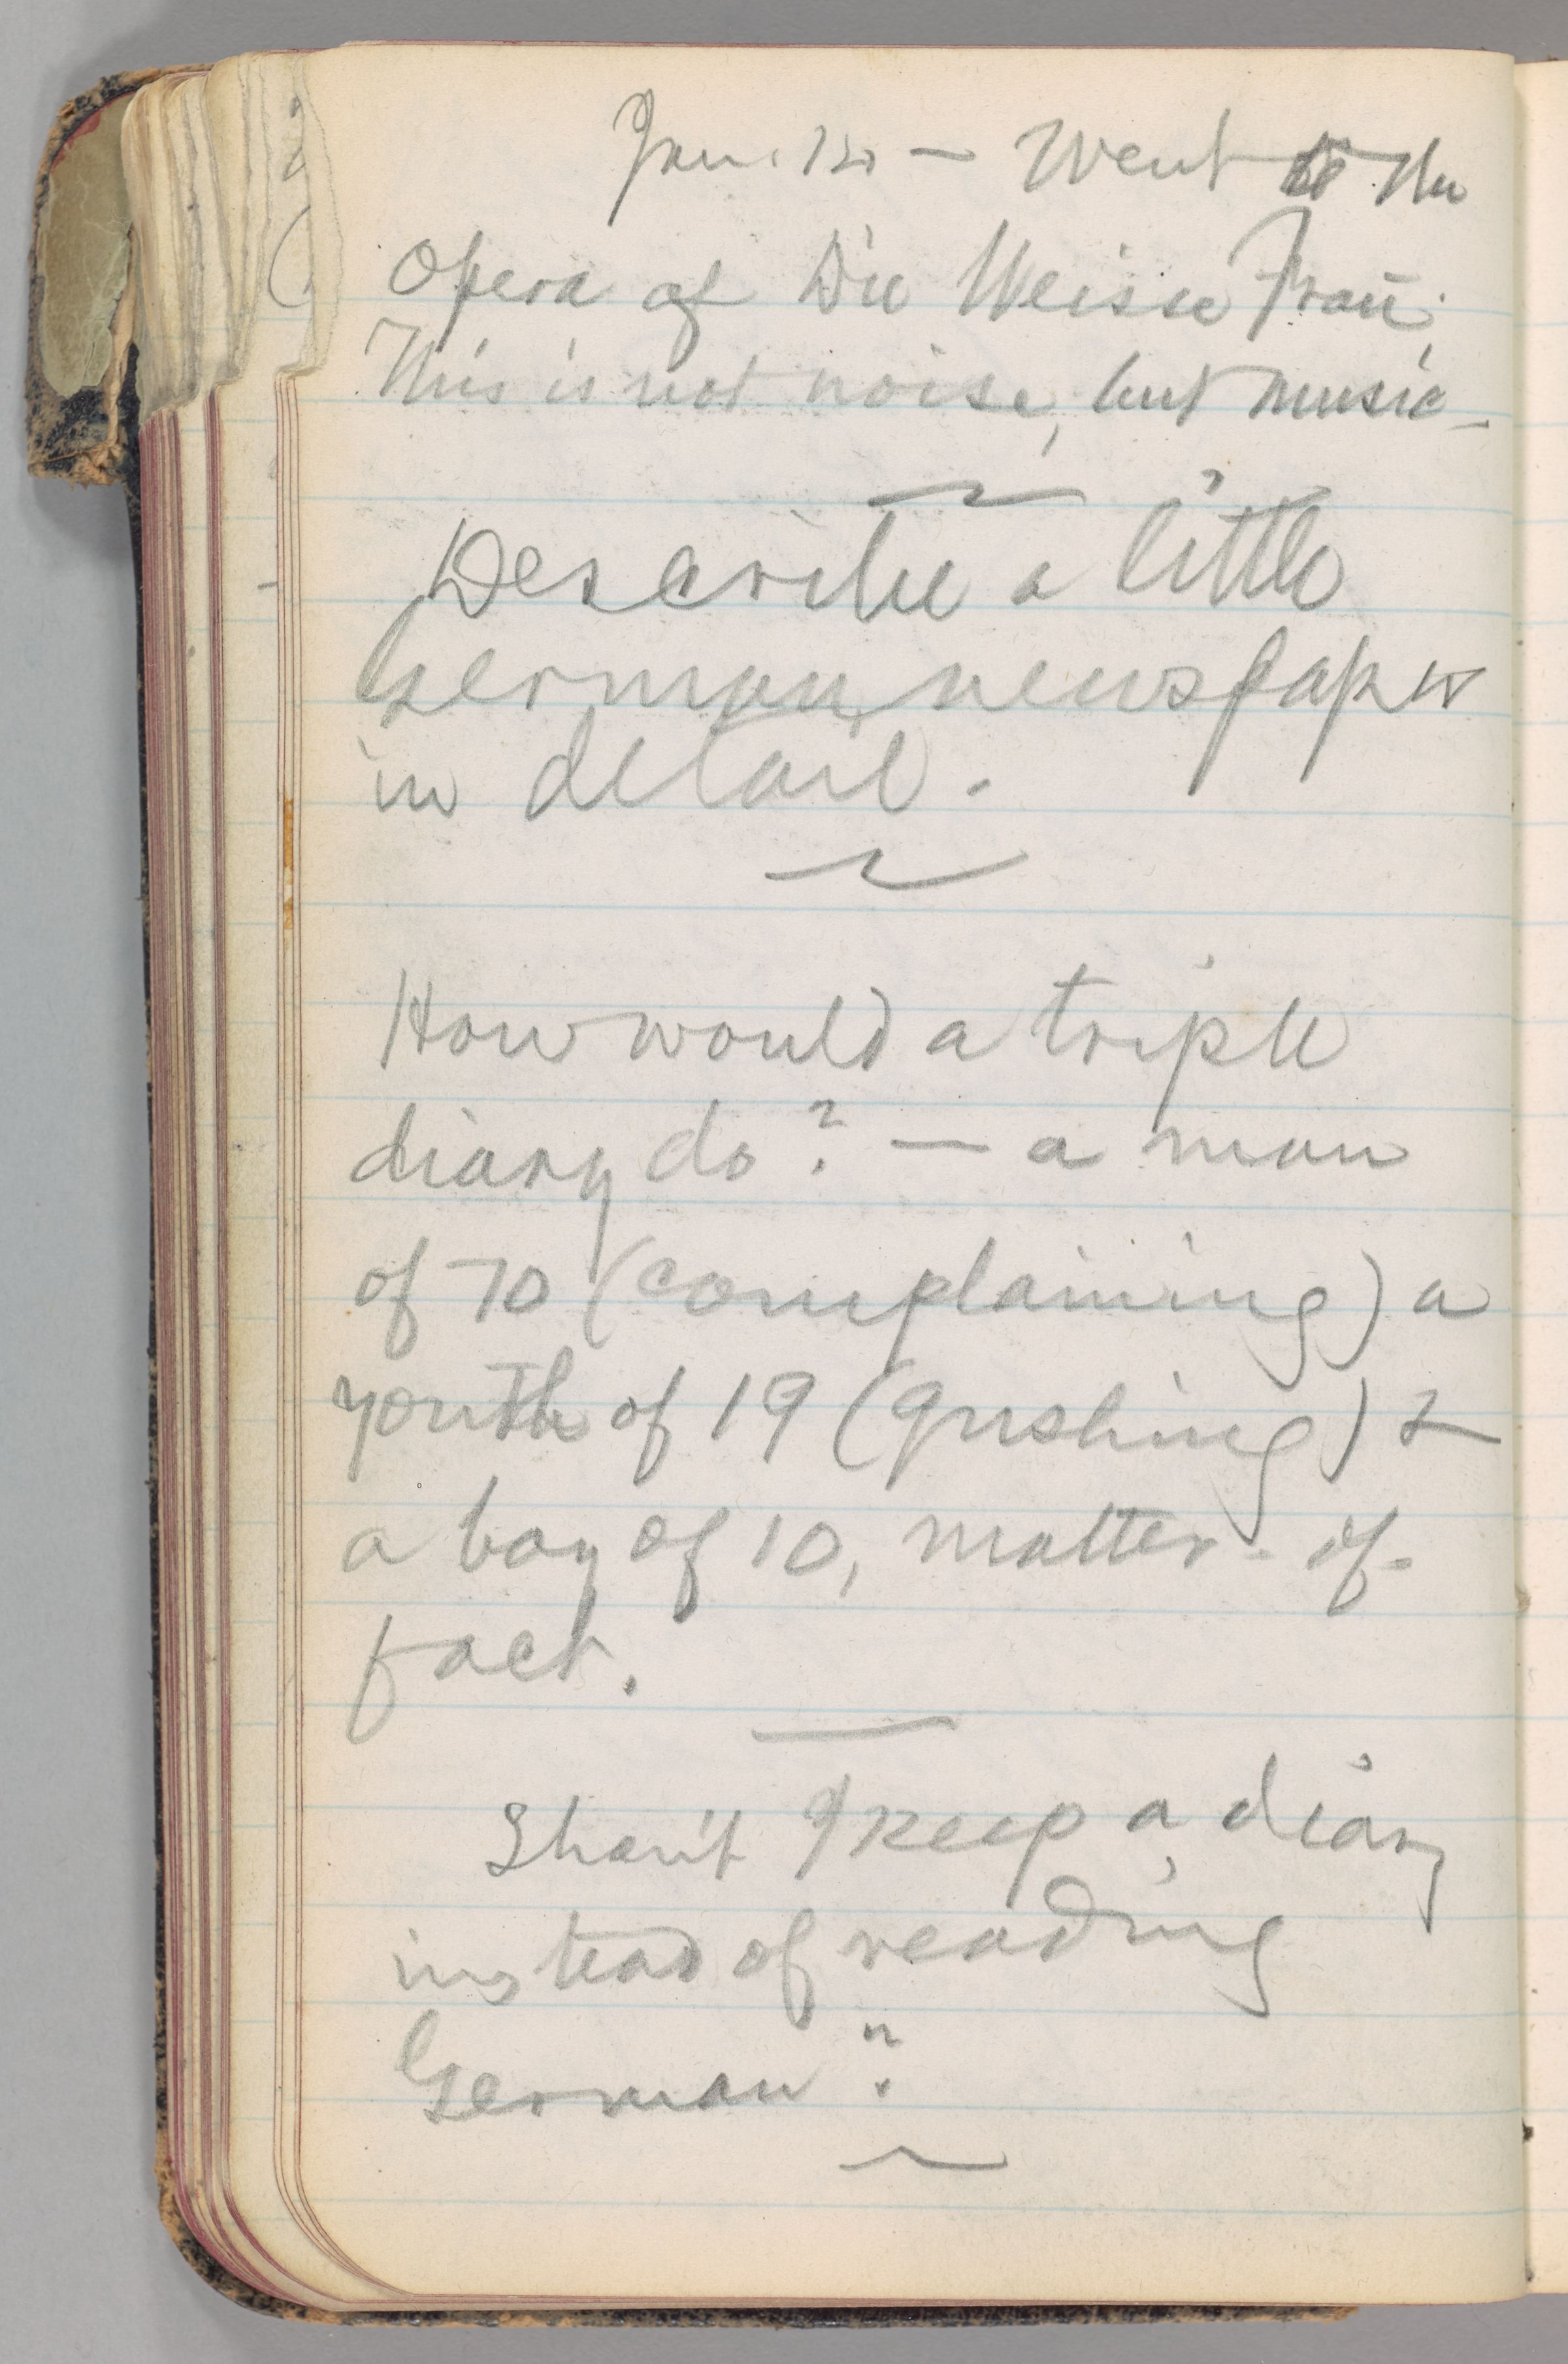 Jan. 12 — Went to the
Opera of Die Weisse Frau.
This is not noise, but music.
Describe a little
German newspaper
in detail.
How would a triple
diary do? — a man
of 70 (complaining) a
youth of 19 (gushing) &
a boy of 10, matter-of-
fact.
Shan't I keep a diary
instead of reading
German?